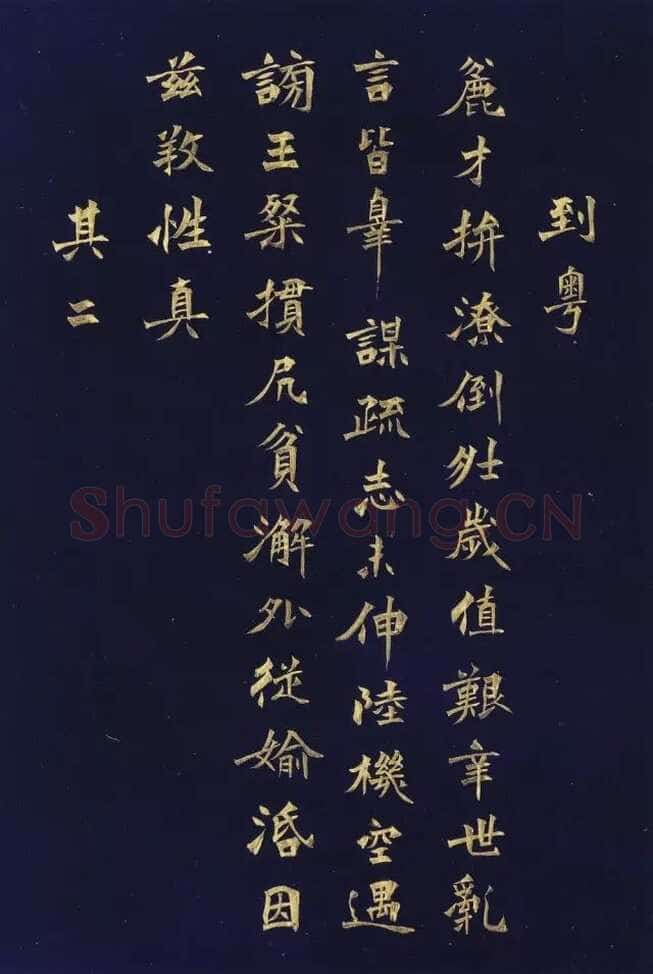 到粵
麄才拚潦倒壯歲值艱辛世亂
言皆辠謀疏志未伸陸機空遇
謗王粲慣凥貧澥外從媮𣴠因
茲斁性真
其二
Shufawang.CN